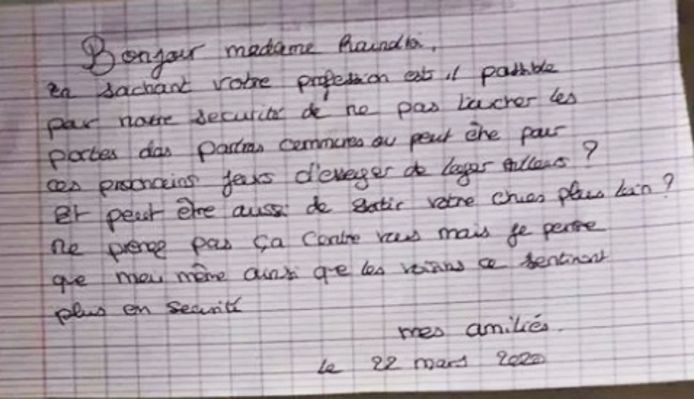 Bonjour madame
en sachant votre profession est il possible
par notre securité de ne pas toucher les
portes das parties communes ou peut être pour
ces prochains jours d'
et peut être aussi de sortir votre chien plus loin ?
ne prenez pas ça contre vous mais je pense
que moi même ainsi que les voisins ce sentiront
plus en securité
mes amitiés.
le 22 mars 2020